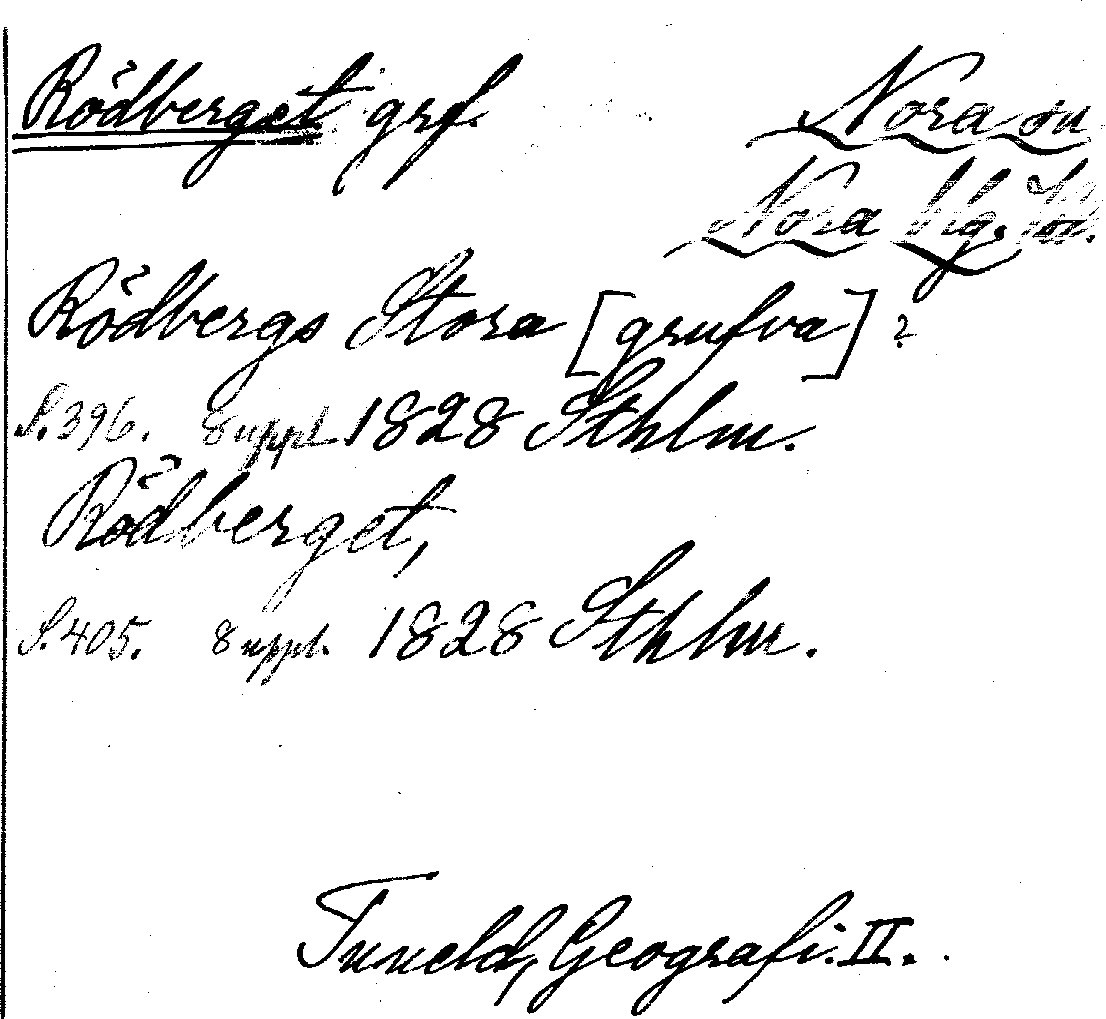 Rödberget grf.
Nora sn
Nora blg.
Rödbergs Stora [grufva]?
S. 396. 8 uppl. 1828 Sthlm.
Rödberget,
S. 405. 8 uppl. 1828 Sthlm.
Tuneld, Geografi. II.